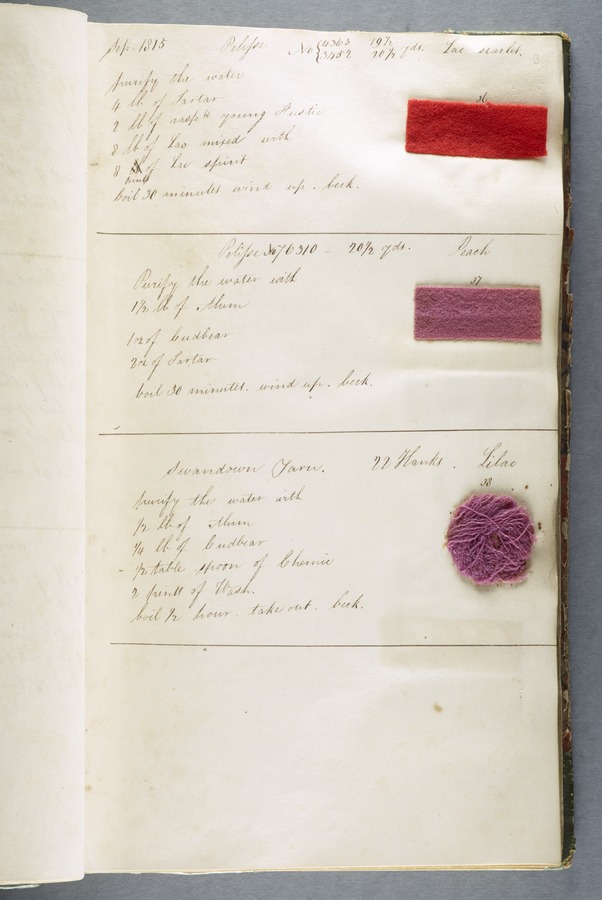 Sep. 1815 Pelisse No { 4363 19½
3452 20½ yds. Lac scarlet.
36
purify the water
4 lb of Tartar
2 lb of rasp'd young Fustic
8 lb of Lac mixed with
8 pints of Lac spirit
boil 30 minutes wind up. beck.
Pelisse No 76310 - 20½ yds. Peach
37
Purify the water with
1½ lb of Alum
1 oz of Cudbear
2 oz of Tartar
boil 30 minutes. wind up. beck.
Swandown Yarn. 22 Hanks. Lilac
38
purify the water with
½ lb of Alum
¼ lb of Cudbear
½ table spoon of Chemic
2 pints of Wash.
boil ½ hour. take out. beck.